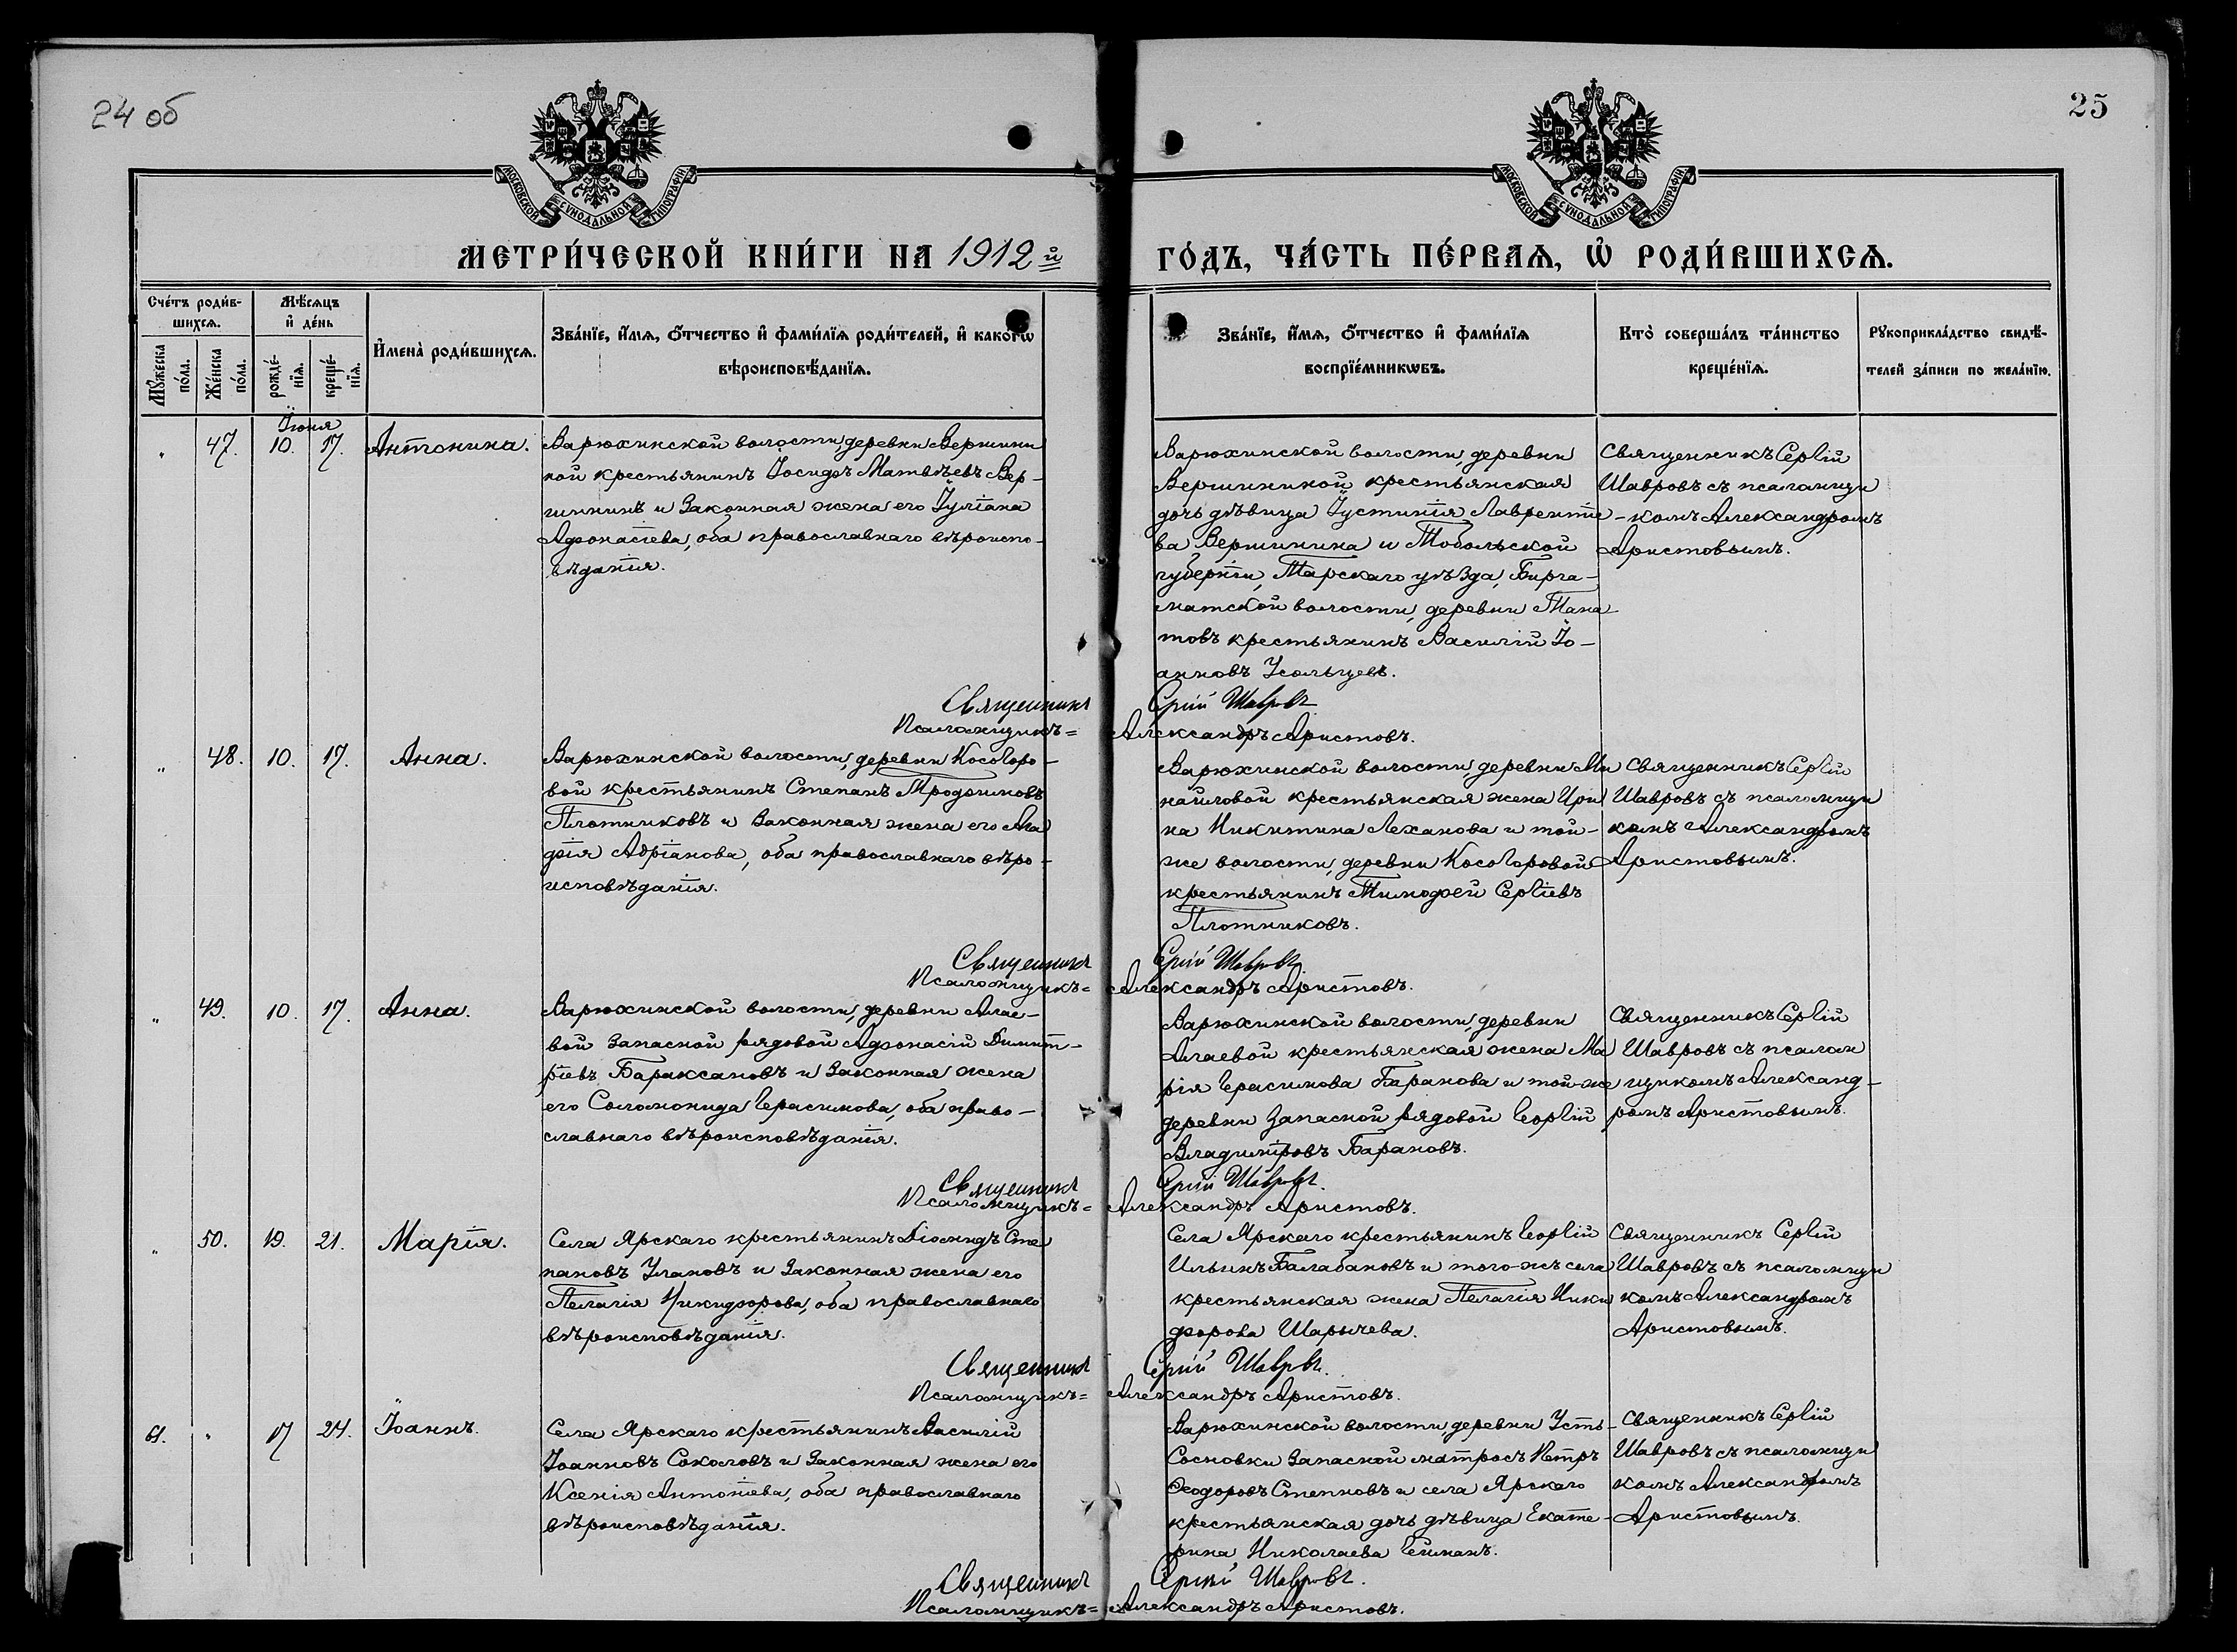 24 об
25
МОСКОВСКОЙ СѴНОДАЛЬНОЙ ТИПОГРАФІИ
МОСКОВСКОЙ СѴНОДАЛЬНОЙ ТИПОГРАФІИ
МЕТРИ́ЧЕСКОЙ КНИ́ГИ НА 1912й
ГО́ДЪ, ЧА́СТЬ ПЕ́РВАѦ, Ѡ҆ РОДИ́ВШИХСѦ.
Сче́тъ роди́в-
шихсѧ.
Мꙋ́жеска по́ла.
Же́нска по́ла.
Мѣ́сѧцъ
и҆ де́нь
рожде́-нїѧ.
креще́-нїѧ.
И҆мена̀ роди́вшихсѧ.
Зва́нїе, и҆́мѧ, ѻ҆́тчество и҆ фами́лїѧ роди́телей, и҆ како́гѡ
вѣроисповѣ́данїѧ.
Зва́нїе, и҆́мѧ, ѻ҆́тчество и҆ фами́лїѧ
воспрїе́мникѡвъ.
Кто̀ соверша́лъ та́инство
креще́нїѧ.
Рꙋкоприкла́дство свидѣ́-
телей за́писи по жела́нїю.
Іюня
" 47. 10. 17. Антонина.
Варюхинской волости, деревни Вершини
ной крестьянинъ Іосифъ Матвѣевъ Вер-
шининъ и законная жена его Іуліана
Афонасіева, оба православнаго вѣроиспо-
вѣданія.
Варюхинской волости, деревни
Вершининой крестьянская
дочь дѣвица Іустинія Лавренті-
ва Вершинина и Тобольской
губерніи, Тарскаго уѣзда, Бирга-
матской волости, деревни Тана
товъ крестьянинъ Василій Іо-
анновъ Усольцевъ.
Священникъ Сергій
Шавровъ съ псаломщи
-комъ Александромъ
Аристовымъ.
Священникъ Сергій Шавровъ
Псаломщикъ= Александръ Аристовъ.
" 48. 10. 17. Анна.
Варюхинской волости, деревни Косогоро-
вой крестьянинъ Степанъ Трофимовъ
Плотниковъ и законная жена его Ага
фія Адріанова, оба православнаго вѣро-
исповѣданія.
Варюхинской волости, деревни Ми
хайловой крестьянская жена Ири
на Никитина Леханова и той-
же волости, деревни Косогоровой
крестьянинъ Тимофей Сергіевъ
Плотниковъ.
Священникъ Сергій
Шавровъ съ псаломщи
комъ Александромъ
Аристовымъ.
Священникъ Сергій Шавровъ.
Псаломщикъ= Александръ Аристовъ.
" 49. 10. 17. Анна.
Варюхинской волости, деревни Алае-
вой запасной рядовой Афонасій Димит-
ріевъ Бараксановъ и законная жена
его Соломонида Герасимова, оба право-
славнаго вѣроисповѣданія.
Варюхинской волости, деревни
Алаевой крестьянская жена Ма
рія Герасимова Баранова и той-же
деревни запасной рядовой Георгій
Владиміровъ Барановъ.
Священникъ Сергій
Шавровъ съ псалом
щикомъ Александ-
ромъ Аристовымъ.
Священникъ Сергій Шавровъ.
Псаломщикъ= Александръ Аристовъ.
" 50. 19. 21. Марія.
Села Ярскаго крестьянинъ Діомидъ Сте
пановъ Улановъ и законная жена его
Пелагія Никифорова, оба православнаго
вѣроисповѣданія.
Села Ярскаго крестьянинъ Георгій
Ильинъ Балабановъ и того-жъ села
крестьянская жена Пелагія Ники
форова Шарычева.
Священникъ Сергій
Шавровъ съ псаломщи
комъ Александромъ
Аристовымъ.
Священникъ Сергій Шавровъ.
Псаломщикъ= Александръ Аристовъ.
61. " 17 24. Іоаннъ.
Села Ярскаго крестьянинъ Василій
Іоанновъ Соколовъ и законная жена его
Ксенія Антоніева, оба православнаго
вѣроисповѣданія.
Варюхинской волости деревни Усть-
Сосновки запасной матросъ Петръ
Феодоровъ Степновъ и села Ярскаго
крестьянская дочь дѣвица Екате-
рина Николаева Гейманъ.
Священникъ Сергій
Шавровъ съ псаломщи
комъ Александромъ
Аристовымъ.
Священникъ Сергій Шавровъ.
Псаломщикъ= Александръ Аристовъ.